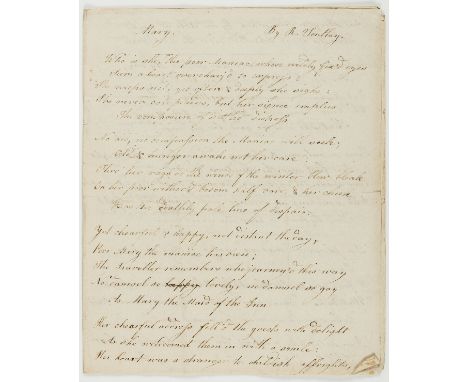 Mary. By R. Southey.
Who is she, the poor Maniac, whose wildly fix'd eyes
Seem a heart overcharg'd to express?
She weeps not, yet often & deeply she sighs;
She never complains, but her silence implies
The composure of settled distress
No aid, no compassion the Maniac will seek;
Cold & hunger awake not her care:
Thro' her rags do the winds of the winter blow bleak
On her poor wither'd bosom half bare, & her cheek
Has the deathly pale hue of despair.
Yet chearful & happy, not distant the day,
Poor Mary the maniac has been;
The Traveller remembers who journey'd this way
No damsel so lovely, no damsel so gay
As Mary the Maid of the Inn
Her chearful address fill'd the guests with delight
As she welcomed them in with a smile;
Her heart was a stranger to childish affright,